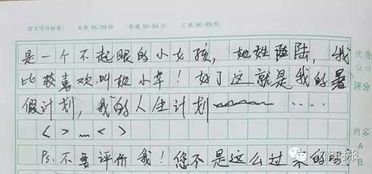 作文评分标准: A类 95-99分 B类 90-94分 C类 80-89分
是一个不起眼的小女孩,她姓陆陆,我
比较喜欢叫她小羊!好了这就是我的暑
假计划,我的人生计划
< > … < >
Ps:不要评价我!您不是这么过来的吗
评分
内容
A
B